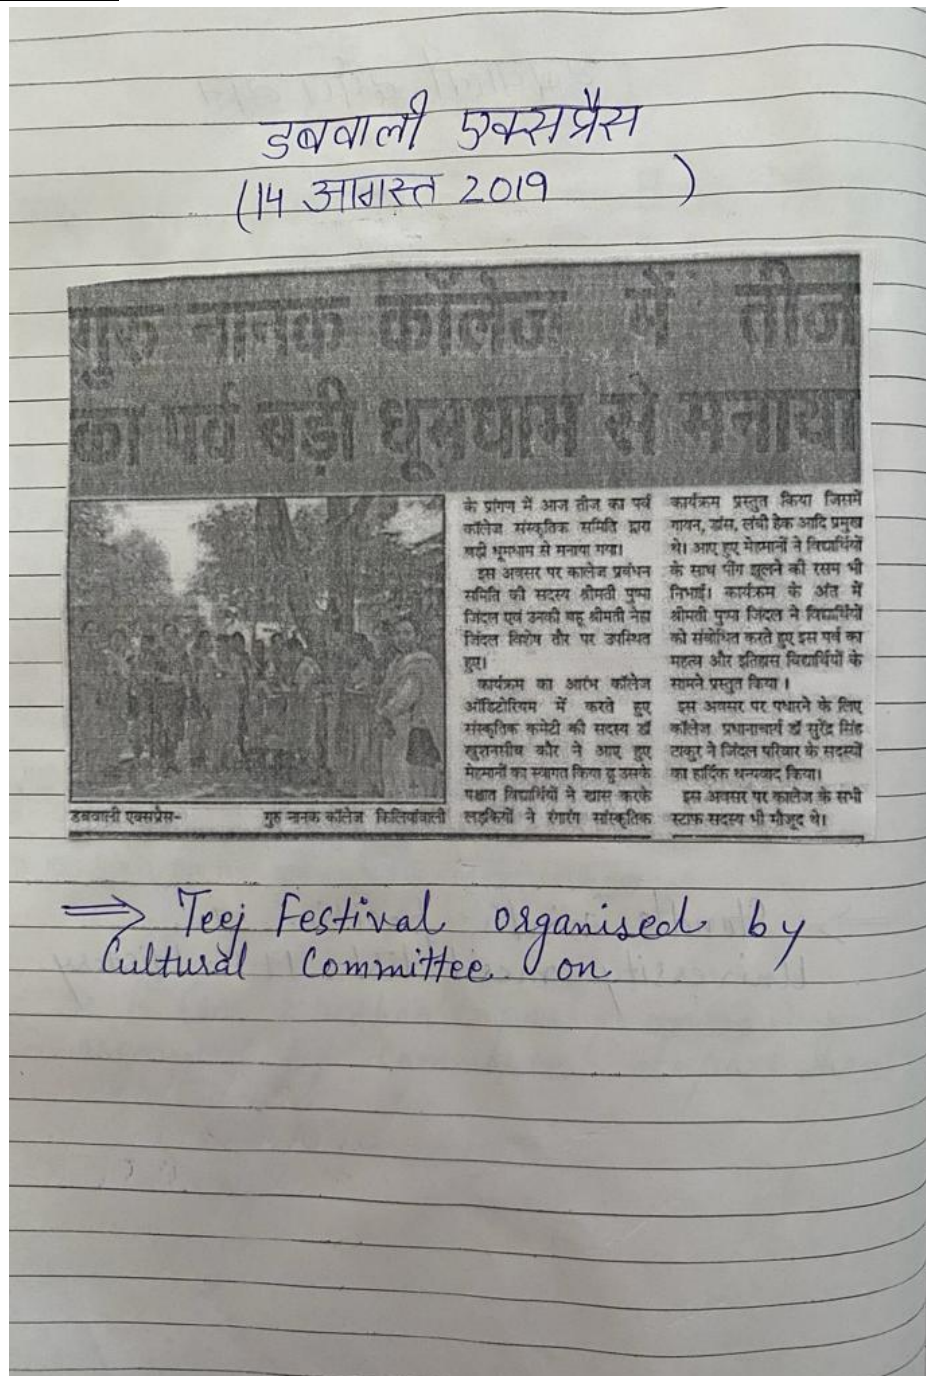 डबवाली एक्सप्रैस
(14 आगस्त 2019 )
गुरु नानक कॉलेज में तीज
का पर्व बड़ी धूमधाम से मनाया
डबवाली एक्सप्रैस- गुरु नानक कॉलेज किलियांवाली
के प्रांगण में आज तीज का पर्व
कॉलेज संस्कृतिक समिति द्वारा
बड़ी धूमधाम से मनाया गया।
इस अवसर पर कालेज प्रबंधन
समिति की सदस्य श्रीमती पुष्पा
जिंदल एवं उनकी बहू श्रीमती नेहा
जिंदल विशेष तौर पर उपस्थित
हुए।
कार्यक्रम का आरंभ कॉलेज
ऑडिटोरियम में करते हुए
संस्कृतिक कमेटी की सदस्य डॉ
खुशनसीब कौर ने आए हुए
मेहमानों का स्वागत किया द्व उसके
पश्चात विद्यार्थियों ने खास करके
लड़कियों ने रंगारंग सांस्कृतिक
कार्यक्रम प्रस्तुत किया जिसमें
गायन, डांस, लंबी हेक आदि प्रमुख
थे। आए हुए मेहमानों ने विद्यार्थियों
के साथ पींग झूलने की रसम भी
निभाई। कार्यक्रम के अंत में
श्रीमती पुष्पा जिंदल ने विद्यार्थियों
को संबोधित करते हुए इस पर्व का
महत्व और इतिहास विद्यार्थियों के
सामने प्रस्तुत किया ।
इस अवसर पर पधारने के लिए
कॉलेज प्रधानाचार्य डॉ सुरेंद्र सिंह
ठाकुर ने जिंदल परिवार के सदस्यों
का हार्दिक धन्यवाद किया।
इस अवसर पर कालेज के सभी
स्टाफ सदस्य भी मौजूद थे।
⇒ Teej Festival organised by
Cultural Committee on